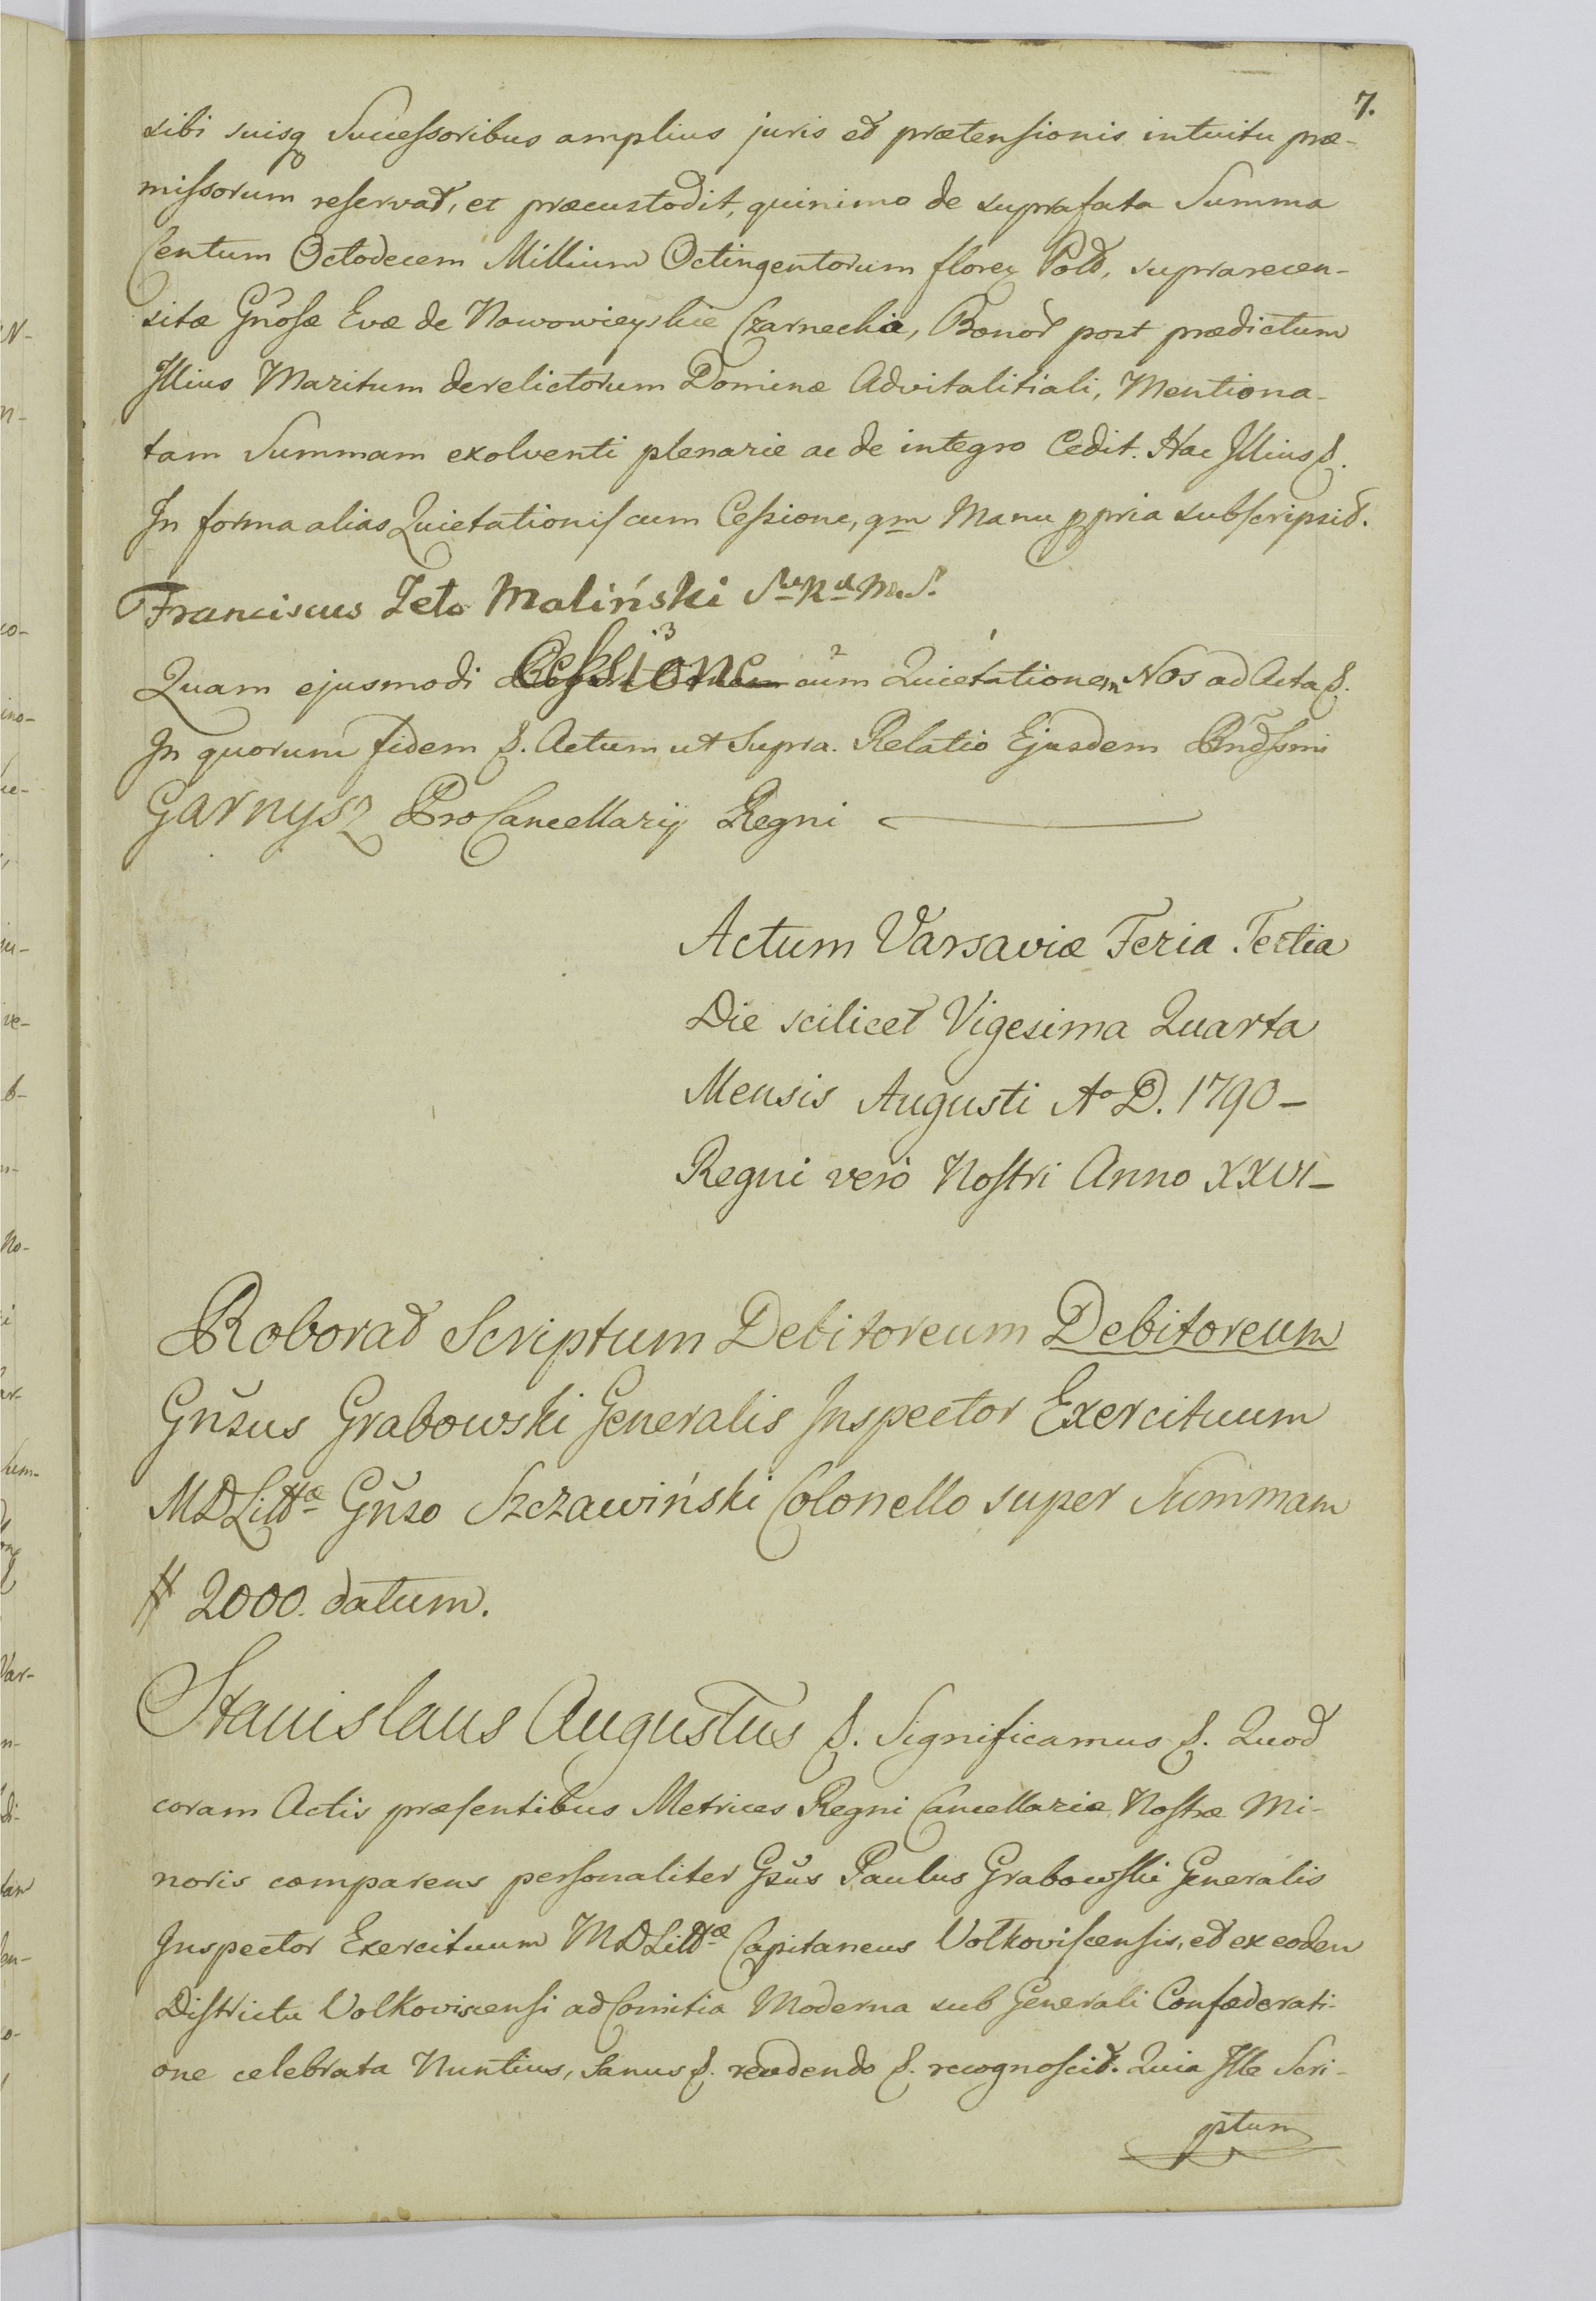 7.
sibi suisq Successoribus amplius juris et prætensionis intuitu præ-
missorum reservat, et præcustodit, quinimo de suprafata Summa
Centum Octodecem Millium Octingentorum floren Pold, suprarecen-
sitæ Gnosæ Evæ de Nowowieyskie Czarnecka, Bonor post prædictum
Illius Maritum derelictorum Dominæ Advitalitiali, Mentiona-
tam Summam exolventi plenarie ac de integro Cedit. Hac Illius &.
In forma alias Quietationis cum Cessione, qm Manu ppria subscripsit.
Franciscus Leto Maliński
Quam ejusmodi Cessione .3 cum 2 Quietationem 1 Nos ad Acta &.
In quorum fidem &. Actum ut Supra. Relatio Ejusdem Rndssmi
Garnysz ProCancellarij Regni
Actum Varsaviæ Feria Tertia
Die scilicet Vigesima Quarta
Mensis Augusti Ao D. 1790 –
Regni verò Nostri Anno XXVI –
Roborat Scriptum Debitoreum Debitoreum
Gnsus Grabowski Generalis Inspector Exercituum
MDLittæ Gnso Szczawiński Colonello super Summam
# 2000. datum.
Stanislaus Augustus &. Significamus &. Quod
coram Actis præsentibus Metrices Regni Cancellariæ Nostræ Mi-
noris comparens personaliter Gsus Paulus Grabowski Generalis
Inspector Exercituum MDLittæ Capitaneus Volkoviscensis, et ex eodem
Districtu Volkoviscensi ad Comitia Moderna sub Generali Confæderati-
one celebrata Nuntius, Sanus &. reddendo &. recognoscit. Quia Ille Scri-
ptum